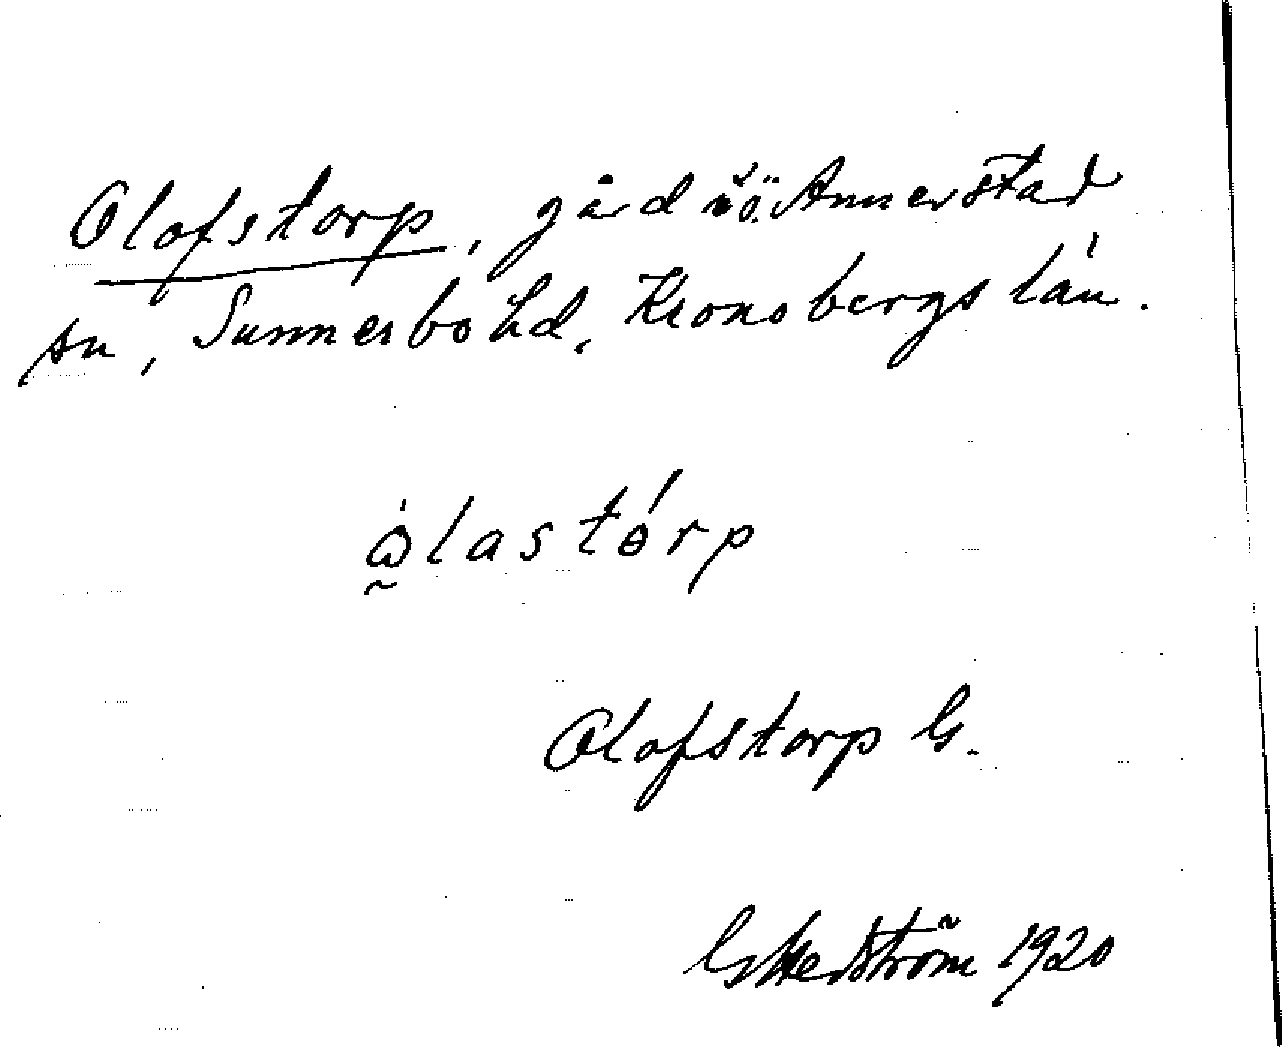 Olofstorp, gård i ö. Annerstad
sn, Sunnerbo hd, Kronobergs län.
lastorp
Olofstorp G.
G Hedström 1920